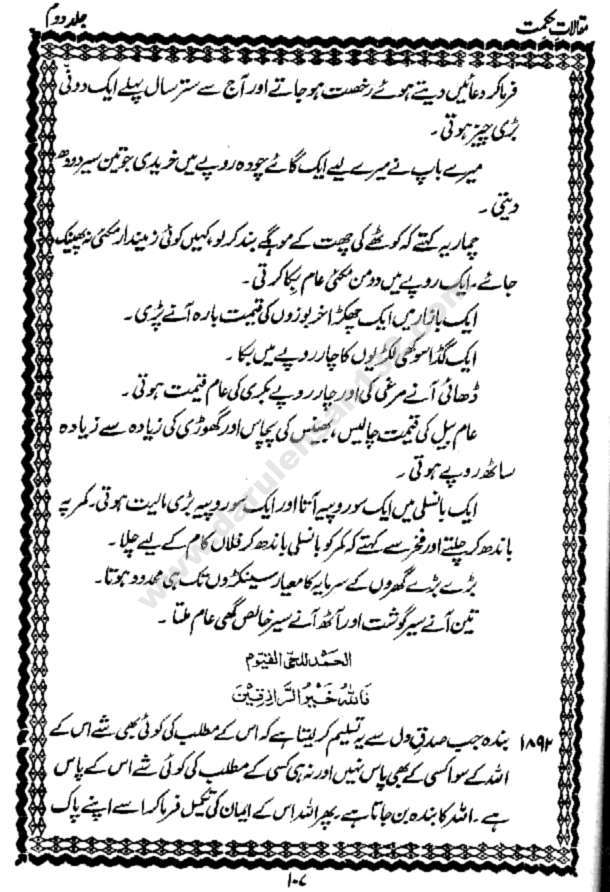 مقالاتِ حکمت
جلد دوم
فرما کر دعائیں دیتے ہوئے رخصت ہو جاتے اور آج سے ستر سال پہلے ایک دونّی
بڑی چیز ہوتی۔
میرے باپ نے میرے لیے ایک گائے چودہ روپے میں خریدی جو تین سیر دودھ
دیتی۔
چماریہ کہتے کہ کوٹھے کی چھت کے موہگے بند کر لو، کہیں کوئی زمیندار مکئی نہ پھینک
جائے۔ ایک روپے میں دو من مکئی عام بکا کرتی۔
ایک بازار میں ایک چھکڑا خربوزوں کی قیمت بارہ آنے پڑی۔
ایک گڈا سوکھی لکڑیوں کا چار روپے میں بکا۔
ڈھائی آنے مرغی کی اور چار روپے بکری کی عام قیمت ہوتی۔
عام بیل کی قیمت چالیس، بھینس کی پچاس اور گھوڑی کی زیادہ سے زیادہ
ساٹھ روپے ہوتی۔
ایک بانسلی میں ایک سو روپیہ آتا اور ایک سو روپیہ بڑی مالیت ہوتی۔ کمر پہ
باندھ کر چلتے اور فخر سے کہتے کہ کمر کو بانسلی باندھ کر فلاں کام کے لیے چلا۔
بڑے بڑے گھروں کے سرمایہ کا معیار سینکڑوں تک ہی محدود ہوتا۔
تین آنے سیر گوشت اور آٹھ آنے سیر خالص گھی عام ملتا۔
الحمد للحی القیوم
فَاللّٰہُ خَیْرُ الرَّازِقِیْنَ
۱۸۹۲ بندہ جب صدقِ دل سے یہ تسلیم کر لیتا ہے کہ اس کے مطلب کی کوئی بھی شے اس کے
اللہ کے سوا کسی کے بھی پاس نہیں اور نہ ہی کسی کے مطلب کی کوئی شے اس کے پاس
ہے۔ اللہ کا بندہ بن جاتا ہے۔ پھر اللہ اس کے ایمان کی تکمیل فرما کر اسے اپنے پاک
۱۰۷